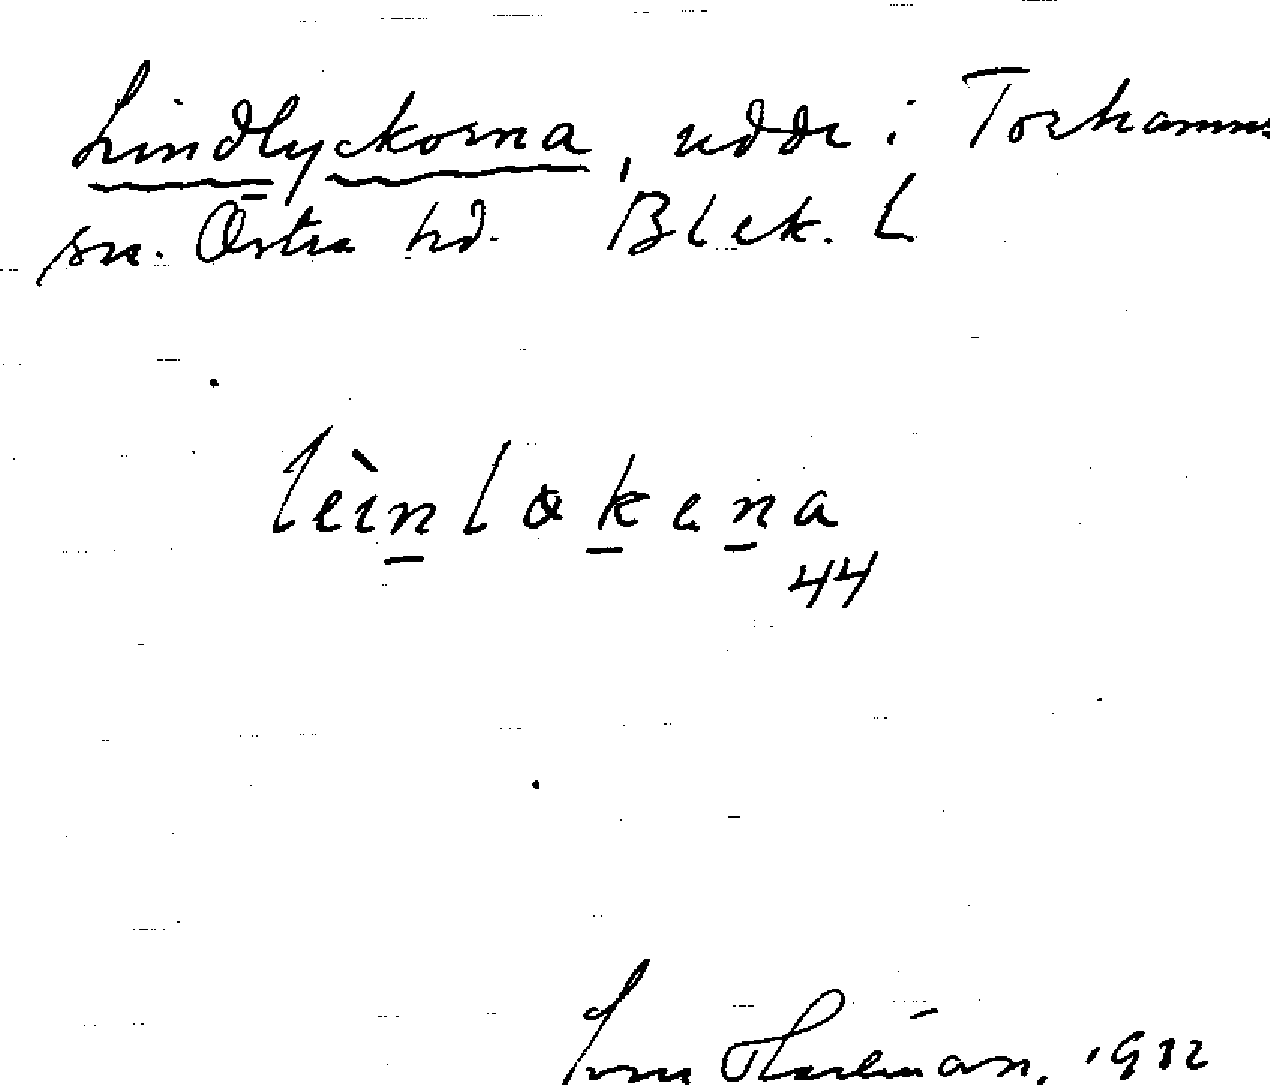 Lindlyckorna, udde i Torhamns
sn. Östra hd. Blek. L
lèinlokena
44
1932